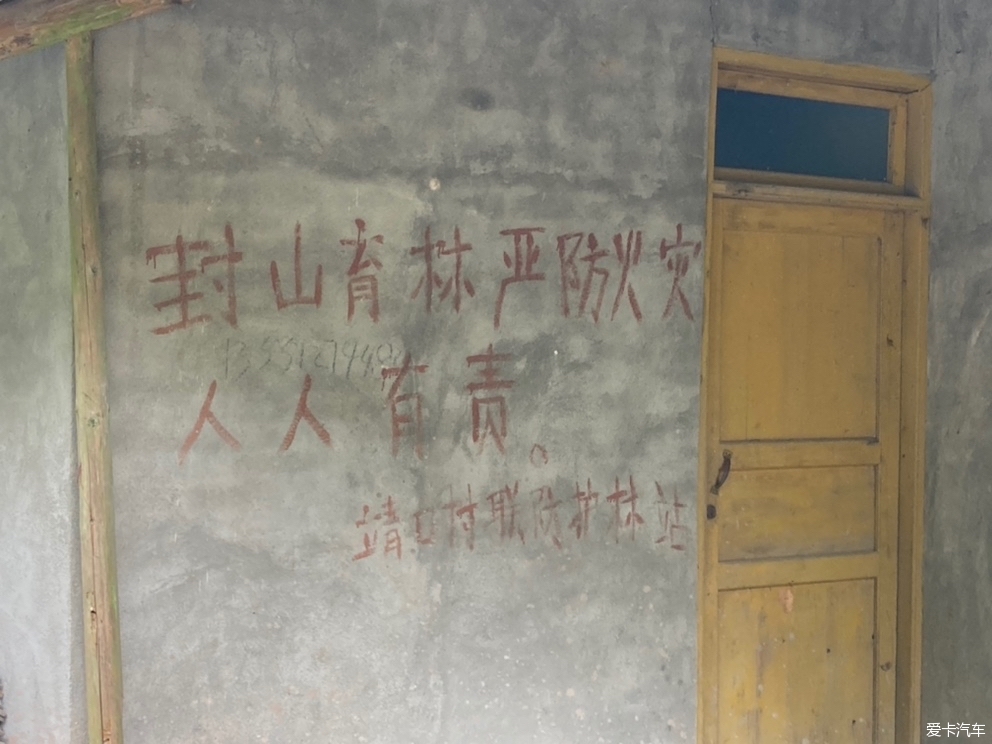 封山育林严防火灾
人人有责。
靖口村联防护林站
爱卡汽车